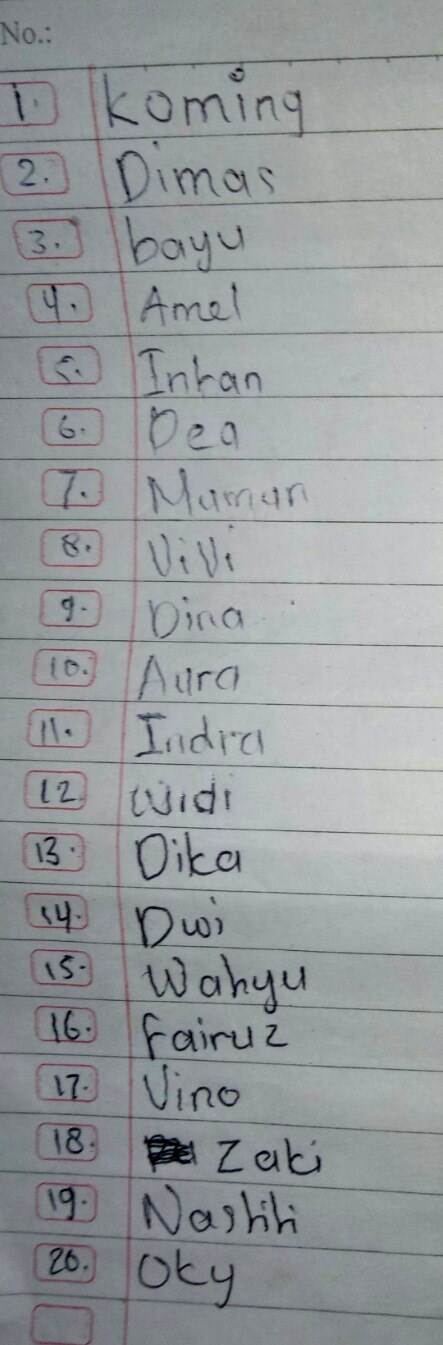 No.:
1. Koming
2. Dimas
3. bayu
4. Amel
5. Intan
6. Dea
7. Mumun
8. ViVi
9. Dina
10. Aura
11. Indra
12. Widi
13. Dika
14. Dwi
15. Wahyu
16. Fairuz
17. Vino
18. Zaki
19. Nashih
20. Oky